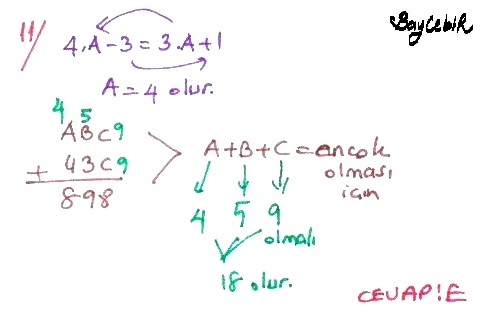 11/
BayCebiR
4.A-3=3.A+1
A=4 olur.
4 5
ABC9
+ 43C9
898
A+B+C=en çok
olması
için
4 5 9
olmalı
18 olur.
CEVAP!E